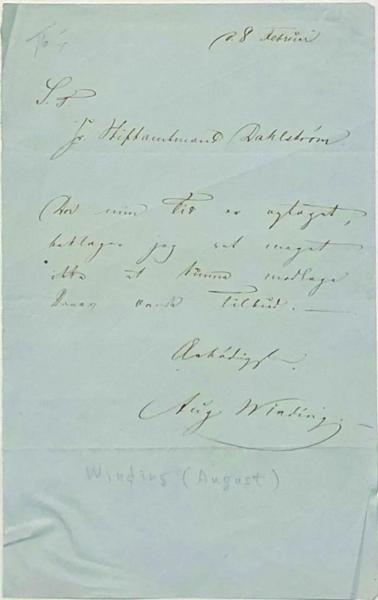 d. 8 Februar
S. T.
Hr. Stiftamtmand Dahlström
Da min Tid er optaget,
beklager jeg ret meget
ikke at kunne modtage
Deres Tilbud. —
Ærbödigst
Aug Winding. —
Winding (August)